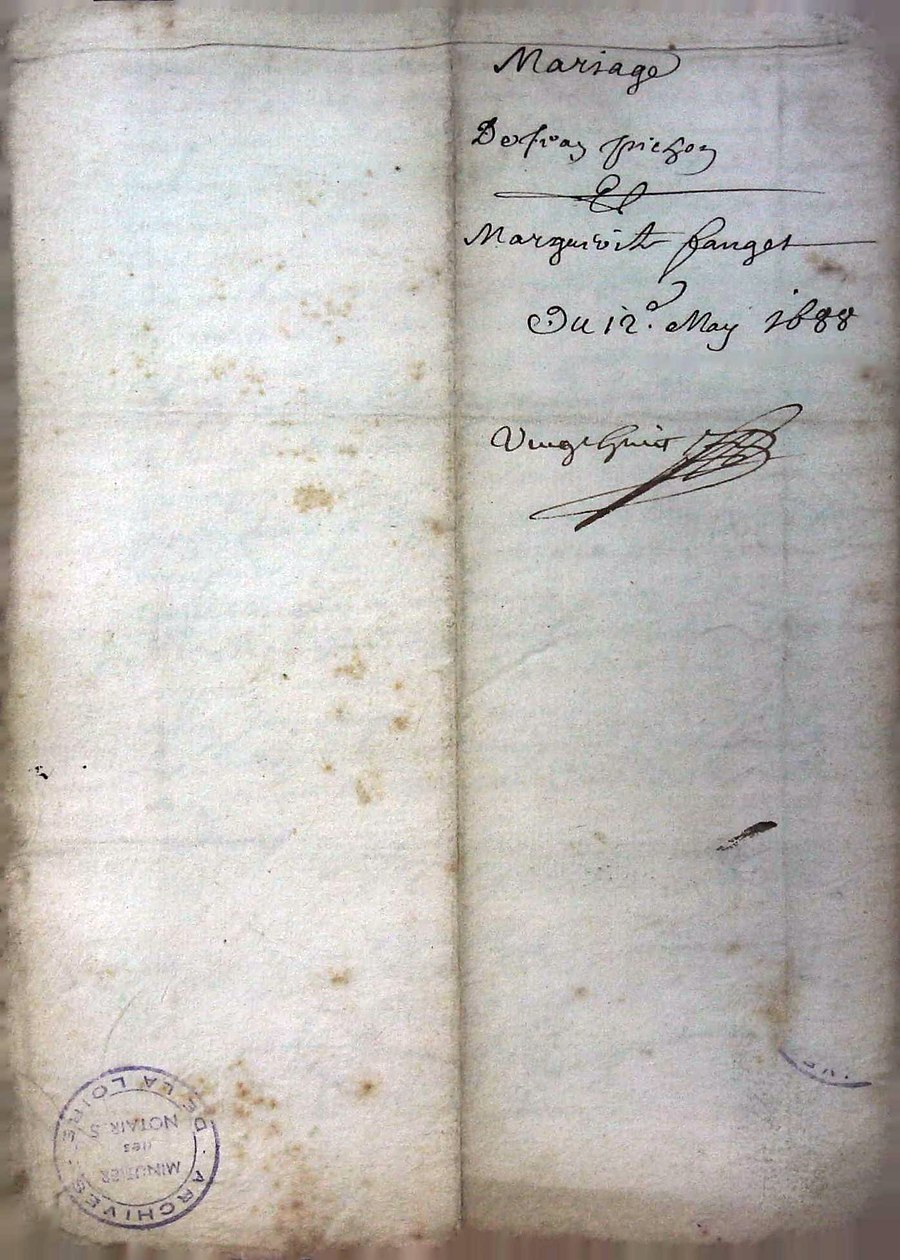 Mariage
De fran pichon
Et
Margueritte fanget
Du 12e. May 1688
Vingt huict
ARCHIVES DE LA LOIRE
MINUTIER
des
NOTAIRES